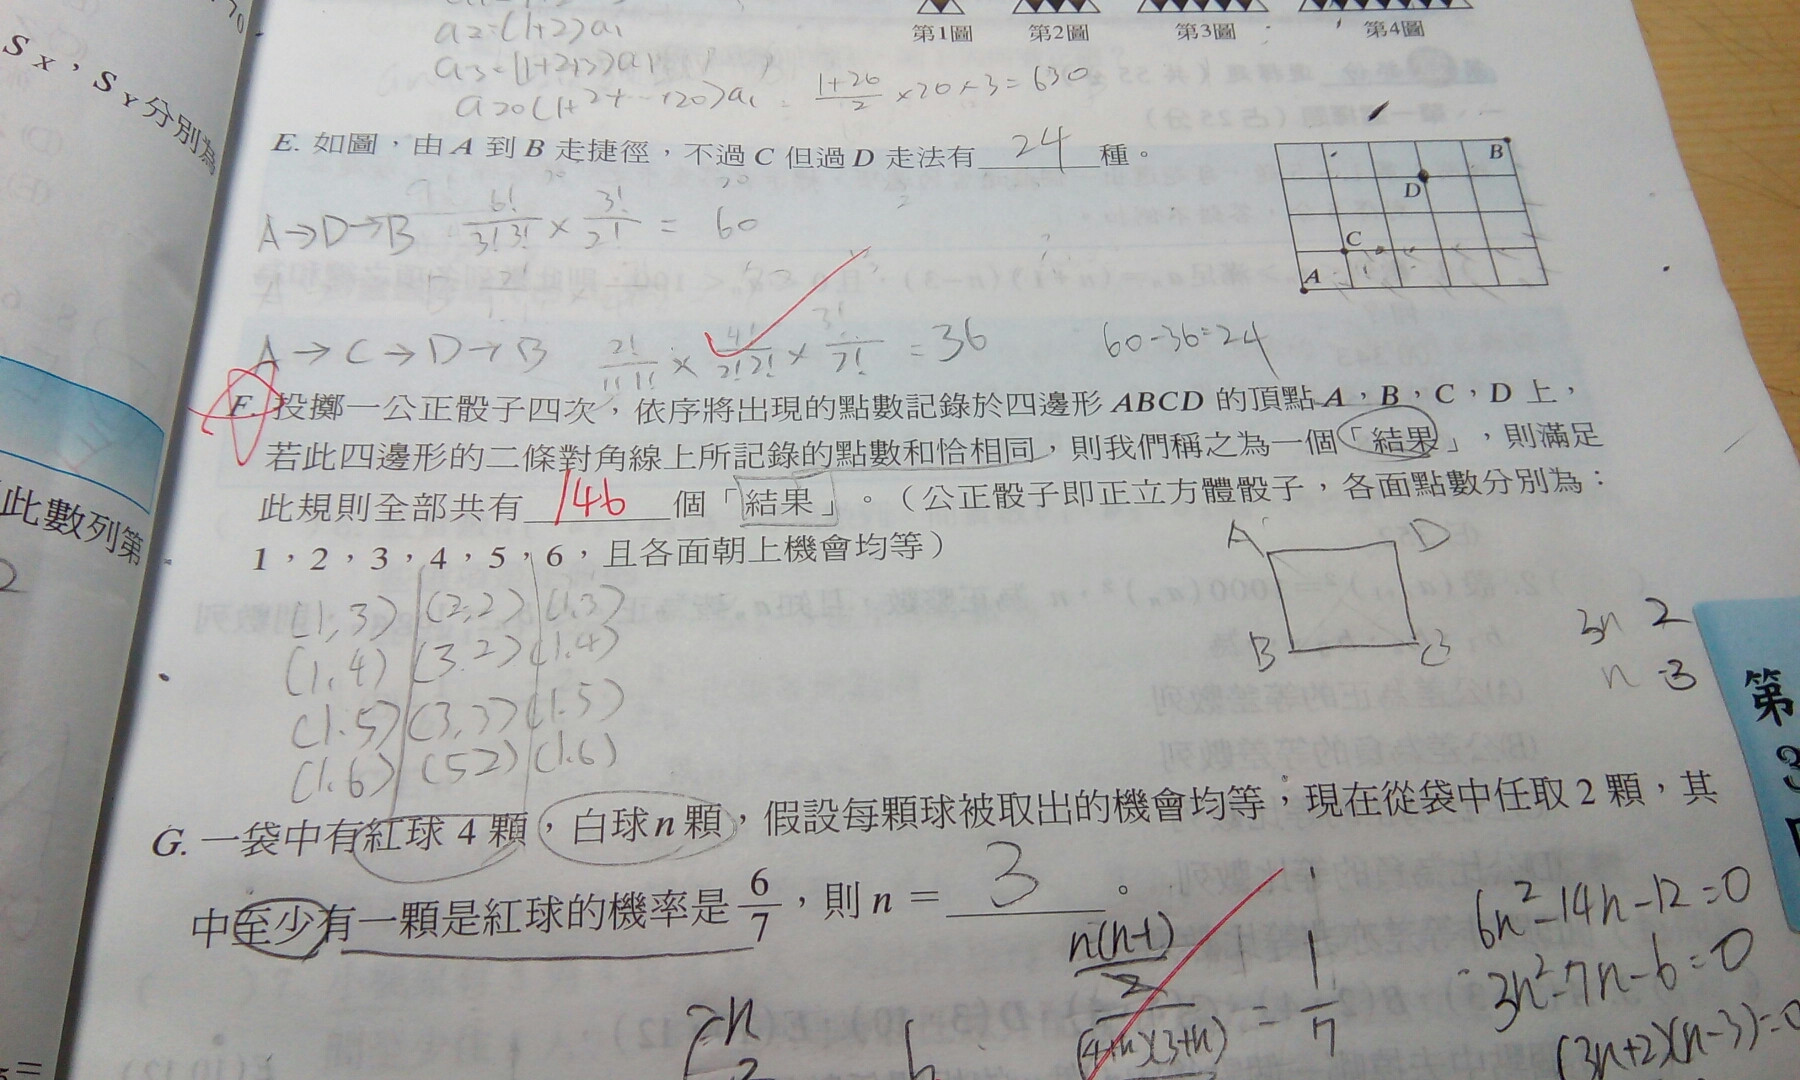 S X，S Y 分別為
此數列第
a2=(1+2)a1
a3=(1+2+3)a1
a20(1+2+…+20)a1 = 1+20/2 ×20×3=630
第1圖 第2圖 第3圖 第4圖
E. 如圖，由 A 到 B 走捷徑，不過 C 但過 D 走法有 24 種。
A→D→B 6!/3!3! × 3!/2! = 60
A→C→D→B 2!/1!1! × 4!/2!2! × 3!/2! = 36 60-36=24
B
D
C
A
F. 投擲一公正骰子四次，依序將出現的點數記錄於四邊形 ABCD 的頂點 A，B，C，D 上，
若此四邊形的二條對角線上所記錄的點數和恰相同，則我們稱之為一個「結果」，則滿足
此規則全部共有 146 個「結果」。（公正骰子即正立方體骰子，各面點數分別為：
1，2，3，4，5，6，且各面朝上機會均等）
A D
B C
(1,3) (2,2) (1,3)
(1,4) (3,2) (1,4)
(1,5) (3,3) (1,5)
(1,6) (5,2) (1,6)
3n 2
n -3
第
3
G. 一袋中有紅球 4 顆，白球 n 顆，假設每顆球被取出的機會均等；現在從袋中任取 2 顆，其
中至少有一顆是紅球的機率是 6/7，則 n = 3 。
n(n-1)/2
(4+n)(3+n) = 1/7
6n²-14n-12=0
3n²-7n-6=0
(3n+2)(n-3)=0